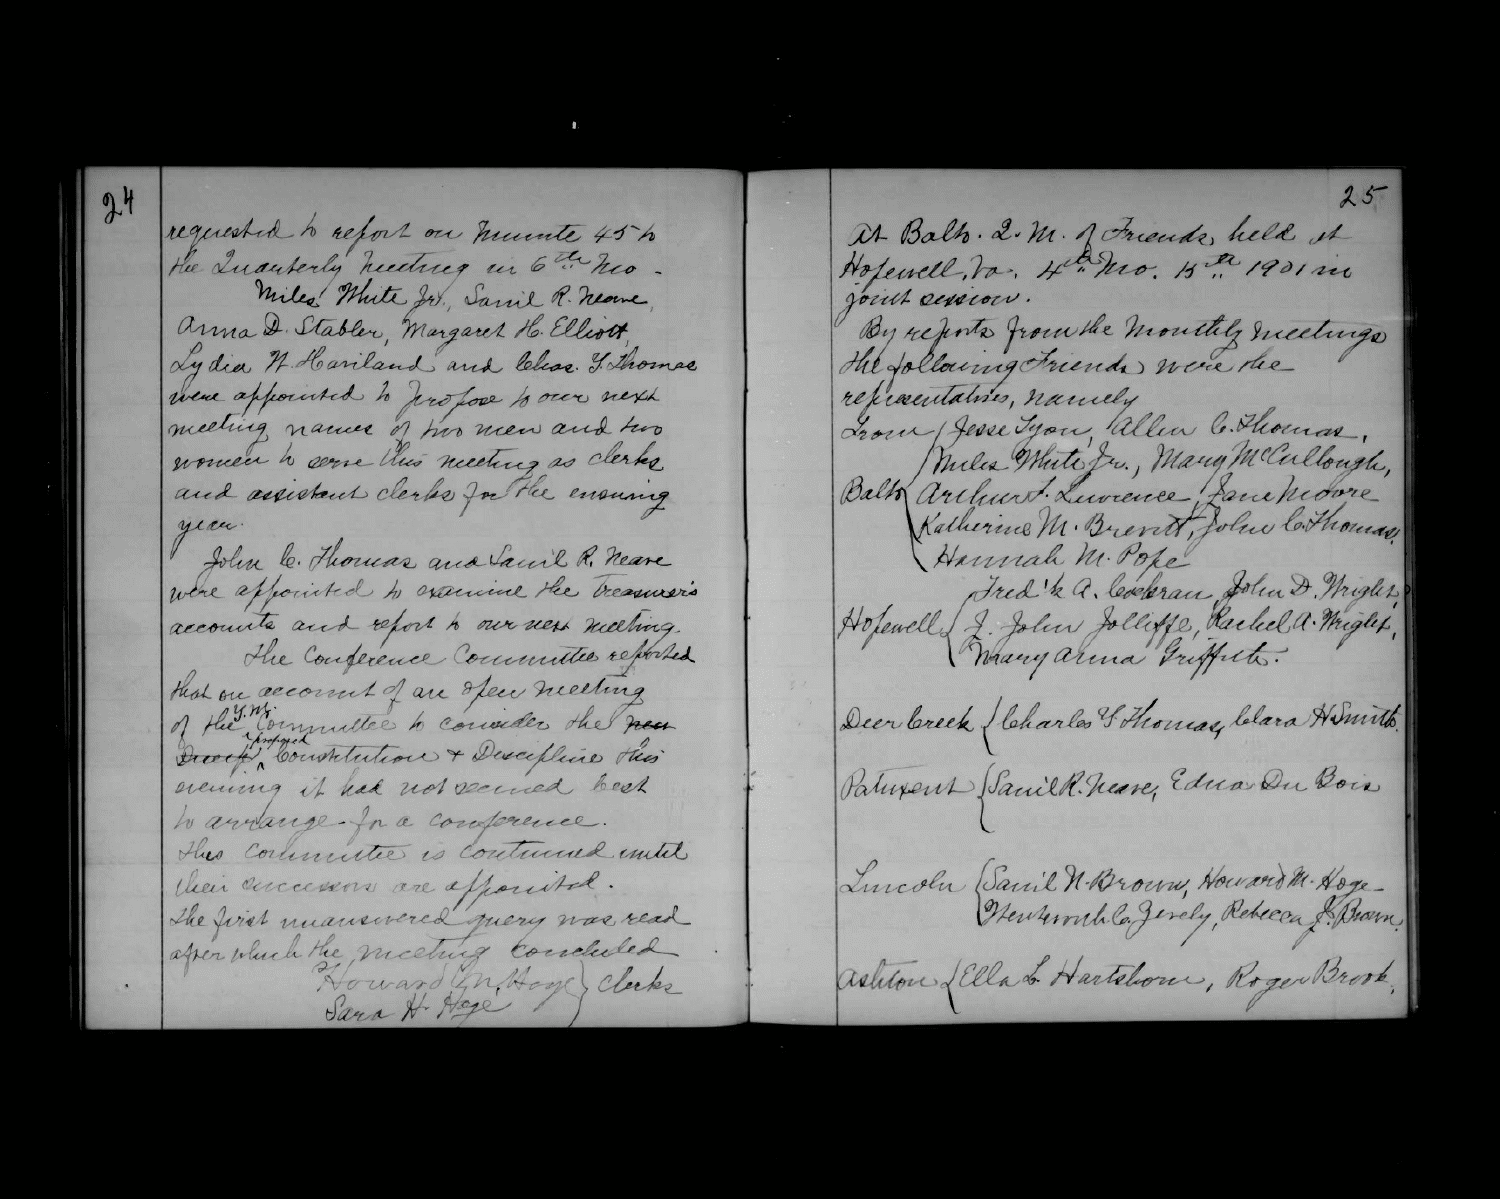 24
requested to report on Minute 45 to
the Quarterly Meeting in 6th Mo -
Miles White Jr., Saml R. Neave,
Anna D. Stabler, Margaret H. Elliott,
Lydia N. Haviland and Chas. Y. Thomas
were appointed to propose to our next
meeting names of two men and two
women to serve this meeting as clerks
and assistant clerks for the ensuing
year.
John C. Thomas and Saml R. Neave
were appointed to examine the Treasurer's
accounts and report to our next meeting.
The Conference Committee reported
that on account of an open meeting
of the Y.M. Committee to consider the new
proposed Constitution & Discipline this
evening it had not seemed best
to arrange for a conference.
This committee is continued until
their successors are appointed.
The first unanswered query was read
after which the meeting concluded
Howard M. Hoge } clerks
Sara H. Hoge
25
At Balto. Q. M. of Friends held at
Hopewell, Va. 4th Mo. 15th 1901 in
joint session.
By reports from the Monthly Meetings
the following Friends were the
representatives, namely
From { Jesse Tyson, Allen C. Thomas,
Miles White Jr., Mary McCullough,
Balto { Arthur L. Lawrence, Jane Moore
Katherine M. Brevitt, John C. Thomas,
Hannah M. Pope
Fred'k A. Cochran, John D. Wright,
Hopewell { J. John Jolliffe, Rachel A. Wright,
Mary Anna Griffith.
Deer Creek { Charles Y Thomas, Clara H Smith.
Patuxent { Saml R. Neave, Edna Du Bois
Lincoln { Saml N. Brown, Howard M. Hoge
C. Zevely, Rebecca J. Brown.
Ashton { Ella L. Hartshorne, Roger Brook,